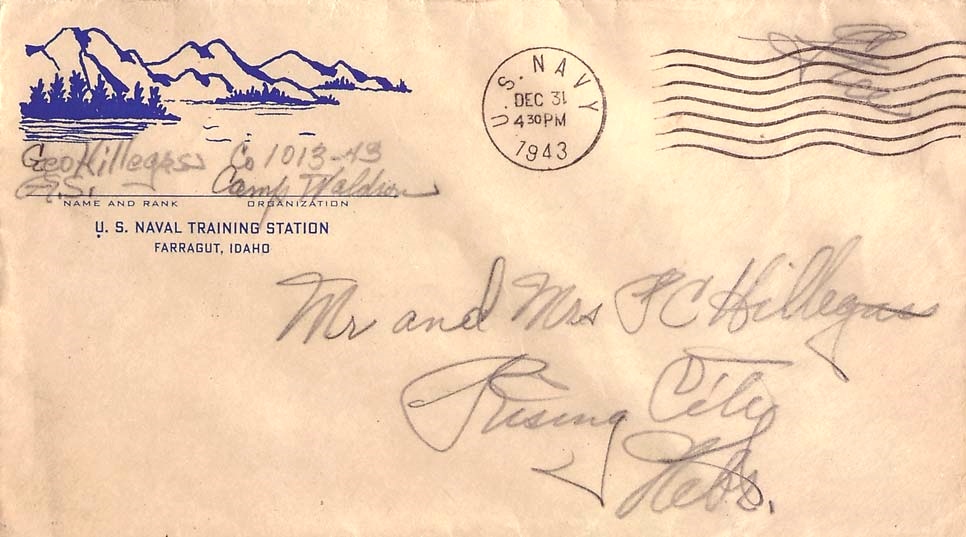 U.S. NAVY
DEC 31
4 30 PM
1943
Free
Geo Hillegass Co 1013-43
A.S. Camp Waldron
NAME AND RANK ORGANIZATION
U. S. NAVAL TRAINING STATION
FARRAGUT, IDAHO
Mr and Mrs F C Hillegass
Rising City
Nebr.